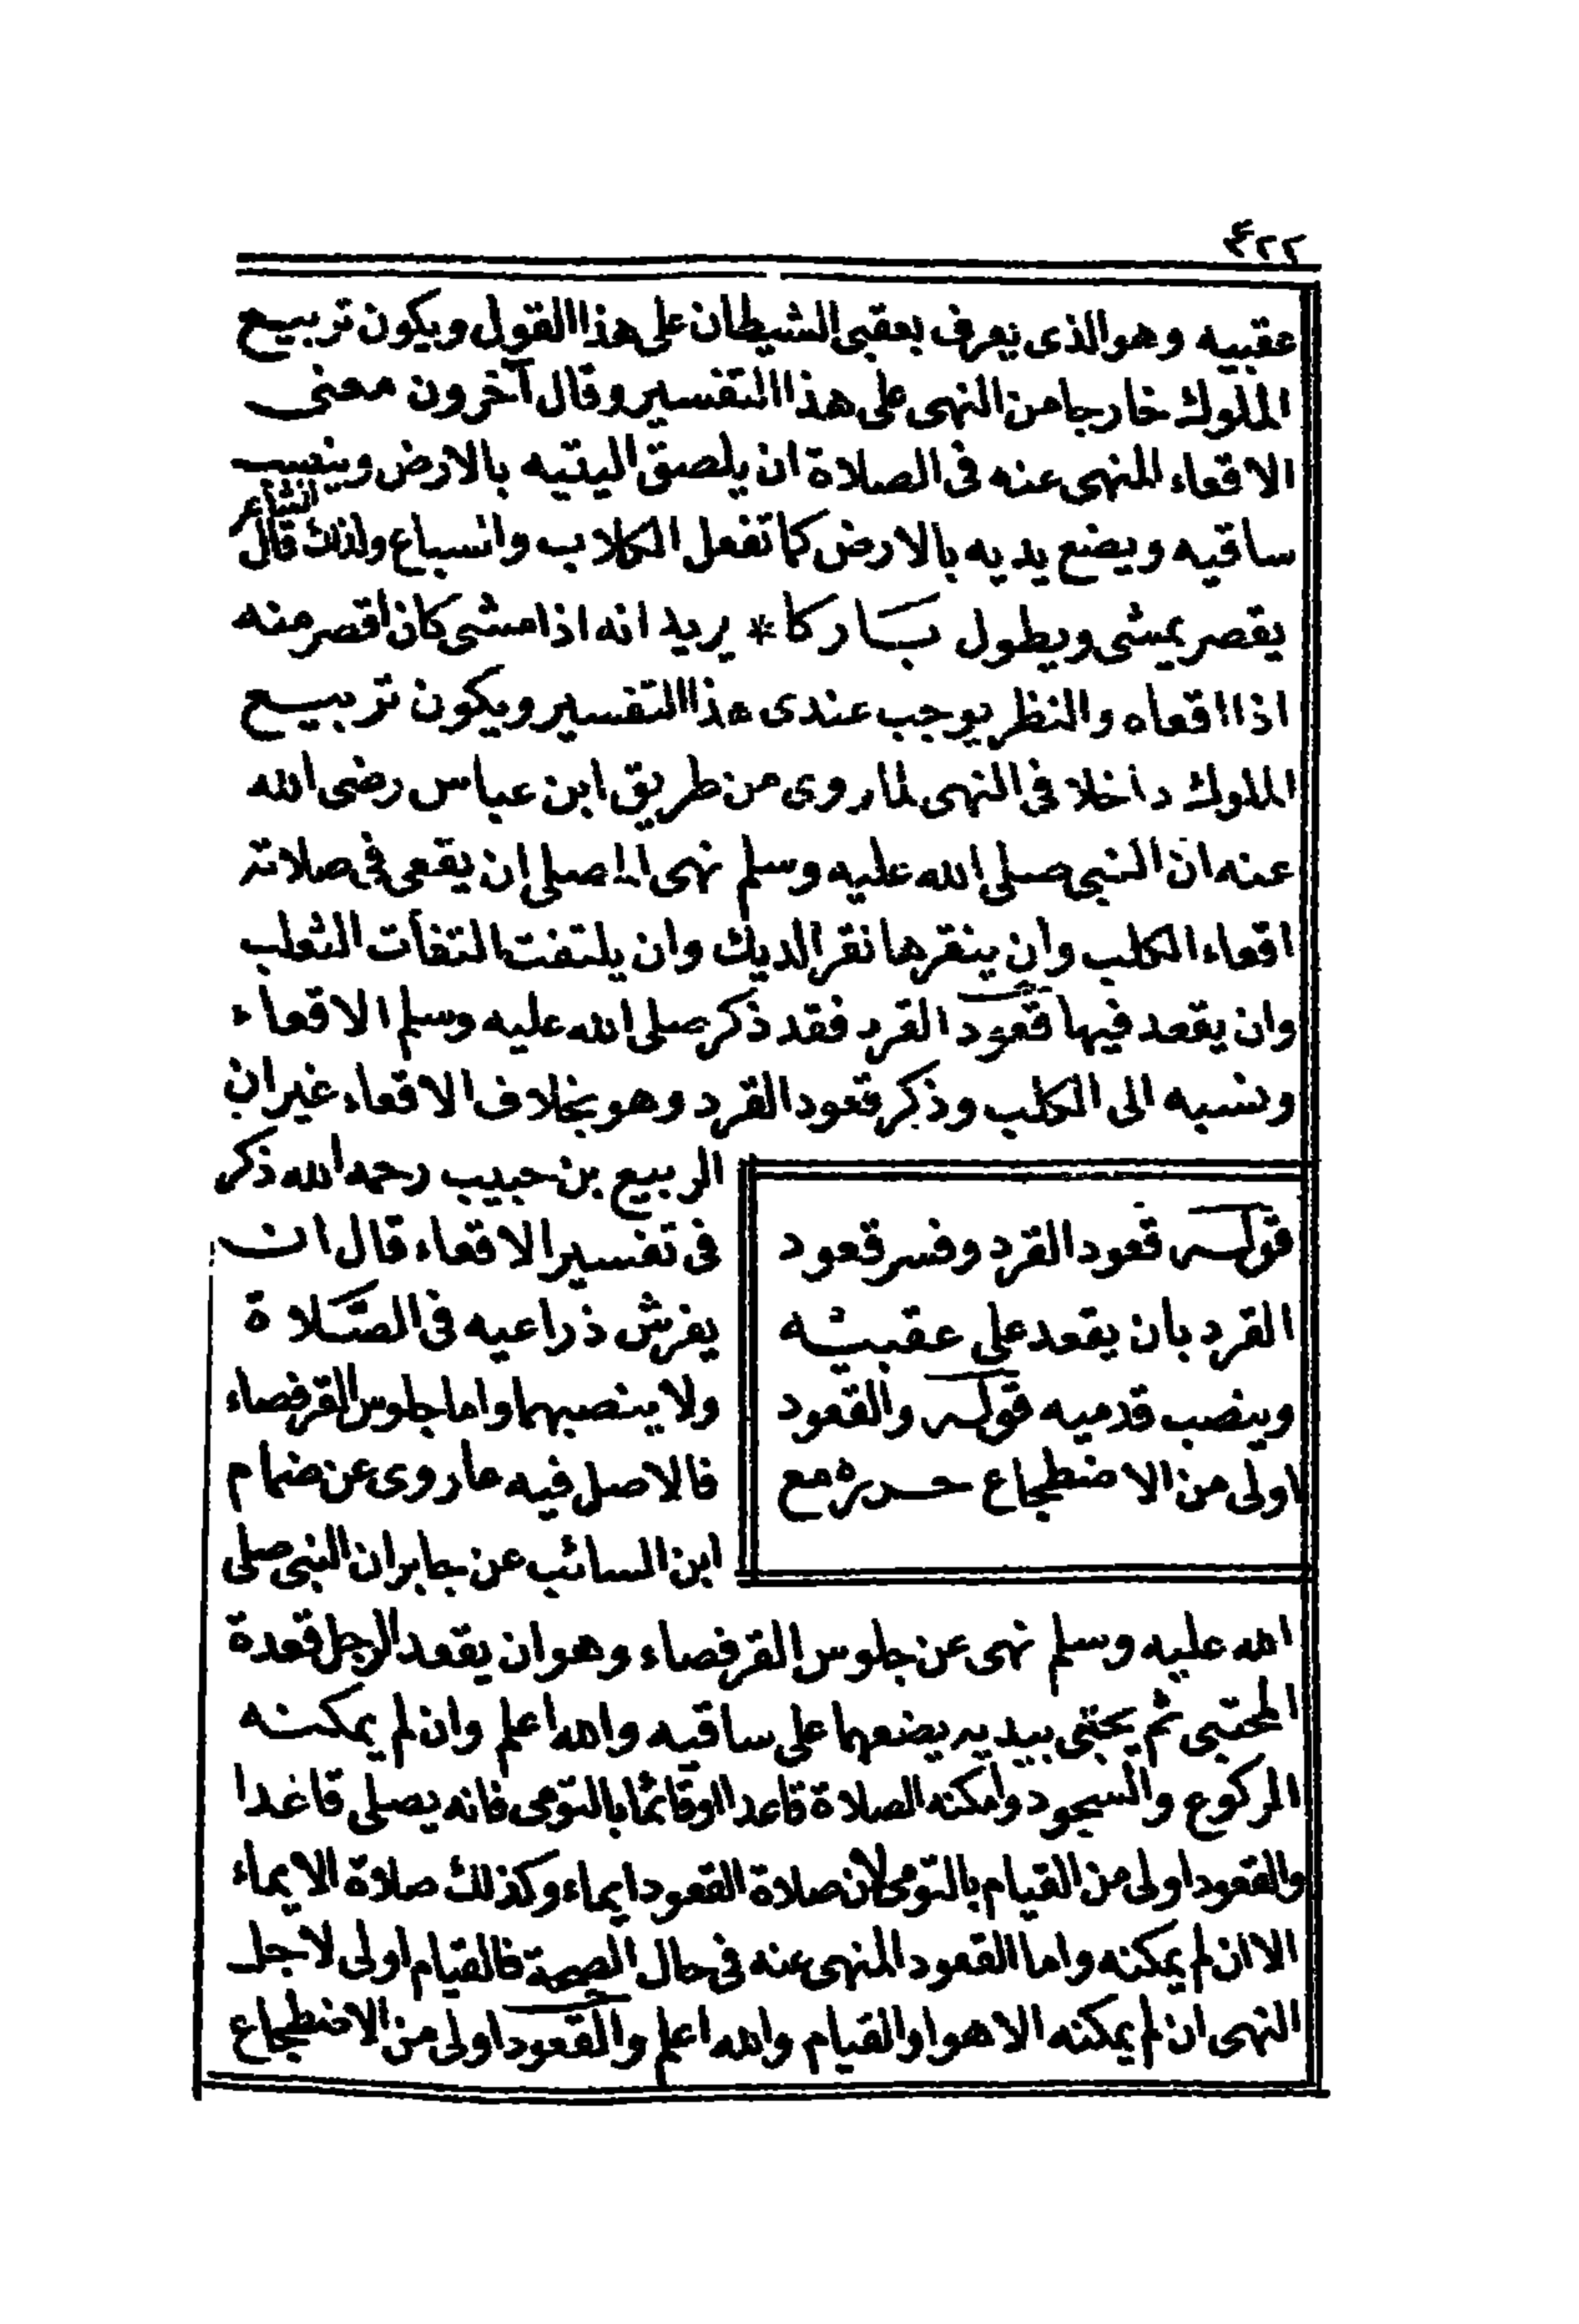 ٤٢٢
عقبيه وهو الذى يعرف بعقبى الشيطان على هذا القول ويكون تربيع
الملوك خارجا من النهى على هذا التفسير وقال آخرون معنى
الاقعاء المنهى عنه فى الصلاة ان يلصق اليتيه بالارض وينصب
ساقيه ويضع يديه بالارض كما تفعل الكلاب والسباع ولذلك قال الشاعر
يقصر يمشى ويطول باركا * يريد انه اذا مشى كان اقصر منه
اذا اقعاه والنظر يوجب عندى هذا التفسير ويكون تربيع
الملوك داخلا فى النهى لما روى من طريق ابن عباس رضى الله
عنه ان النبى صلى الله عليه وسلم نهى المصلى ان يقعى فى صلاته
اقعاء الكلب وان ينقرها نقر الديك وان يلتفت التفات الثعلب
وان يقعد فيها قعود القرد فقد ذكر صلى الله عليه وسلم الاقعاء
ونسبه الى الكلب وذكر قعود القرد وهو بخلاف الاقعاء غير ان
الربيع بن حبيب رحمه الله ذكر
فى تفسير الاقعاء قال ان
يفرش ذراعيه فى الصلاة
ولا ينصبهما واما جلوس القرفصاء
فالاصل فيه ما روى عن ضمام
ابن السائب عن جابر ان النبى صلى
الله عليه وسلم نهى عن جلوس القرفصاء وهو ان يقعد الرجل قعدة
المحتبى ثم يحتبى بيديه يضعهما على ساقيه والله اعلم وان لم يمكنه
الركوع والسجود وامكنه الصلاة قاعدا او قائما بالتومى فانه يصلى قاعدا
والقعود اولى من القيام بالتومى لان صلاة القعود ايماء وكذلك صلاة الايماء
الا ان لم يمكنه واما القعود المنهى عنه فى حال الصحة فالقيام اولى لاجل
النهى ان لم يمكنه الا هو او القيام والله اعلم والقعود اولى من الاضطجاع
قوله قعود القرد وفسر قعود
القرد بان يقعد على عقبيه
وينصب قدميه قوله والقعود
اولى من الاضطجاع مع